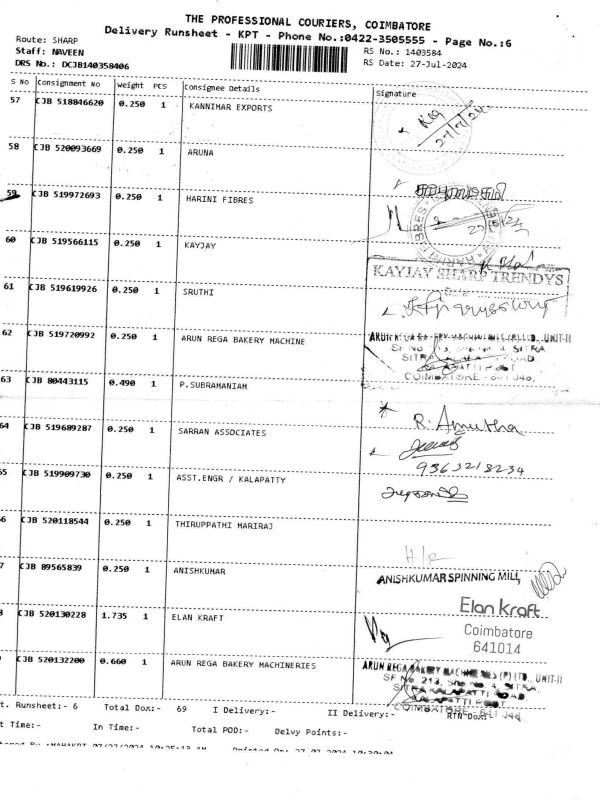 THE PROFESSIONAL COURIERS, COIMBATORE
Delivery Runsheet - KPT - Phone No.:0422-3505555 - Page No.:6
Route: SHARP
RS No.: 1403584
Staff: NAVEEN
RS Date: 27-Jul-2024
DRS No.: DCJB140358406
S No Consignment No Weight PCS Consignee Details Signature
57 CJB 518846620 0.250 1 KANNIMAR EXPORTS
58 CJB 520093669 0.250 1 ARUNA
59 CJB 519972693 0.250 1 HARINI FIBRES
HARINI FIBRES
60 CJB 519566115 0.250 1 KAYJAY
KAYJAY SHARP TRENDYS
61 CJB 519619926 0.250 1 SRUTHI
62 CJB 519720992 0.250 1 ARUN REGA BAKERY MACHINE
COIMBATORE - 641 048.
63 CJB 80443115 0.490 1 P.SUBRAMANIAM
R. Amutha
64 CJB 519689287 0.250 1 SARRAN ASSOCIATES
9363218234
65 CJB 519909730 0.250 1 ASST.ENGR / KALAPATTY
6 CJB 520118544 0.250 1 THIRUPPATHI MARIRAJ
7 CJB 89565839 0.250 1 ANISHKUMAR
ANISHKUMAR SPINNING MILL,
8 CJB 520130228 1.735 1 ELAN KRAFT
Elan Kraft
Coimbatore
641014
CJB 520132200 0.660 1 ARUN REGA BAKERY MACHINERIES
ARUN REGA BAKERY MACHINERIES (P) LTD., UNIT-II
SF No. 213,
SITRA KALAPATTI ROAD
KALAPATTI POST
COIMBATORE - 641 048
t. Runsheet:- 6 Total Dox:- 69 I Delivery:- II Delivery:- RTN Dox:-
t Time:- In Time:- Total POD:- Delvy Points:-